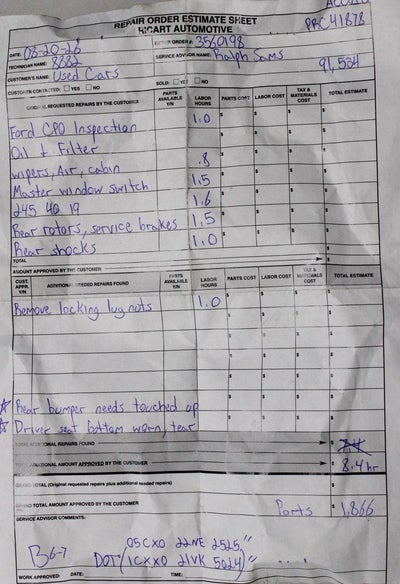 ACC
REPAIR ORDER ESTIMATE SHEET
RICART AUTOMOTIVE
PRC41878
DATE: 08-20-26
ORDER #: 3560198
TECHNICIAN NAME: 8682
SERVICE ADVISOR NAME: Ralph Sams
91,534
CUSTOMER'S NAME: Used Cars
CUSTOMER CONTACTED: YES NO
SOLD: YES NO
ORIGINAL REQUESTED REPAIRS BY THE CUSTOMER PARTS AVAILABLE Y/N LABOR HOURS PARTS COST LABOR COST TAX & MATERIALS COST TOTAL ESTIMATE
Ford CPO Inspection 1.0
Oil & Filter
wipers, Air, cabin .8
Master window switch 1.5
245 40 19 1.6
Rear rotors, service brakes 1.5
Rear shocks 1.0
TOTAL
AMOUNT APPROVED BY THE CUSTOMER
CUST. APPR. Y/N ADDITIONAL NEEDED REPAIRS FOUND PARTS AVAILABLE Y/N LABOR HOURS PARTS COST LABOR COST TAX & MATERIALS COST TOTAL ESTIMATE
Remove locking lug nuts 1.0
Rear bumper needs touched up
Driver seat bottom worn, tear
TOTAL ADDITIONAL REPAIRS FOUND
ADDITIONAL AMOUNT APPROVED BY THE CUSTOMER 8.4 hr
GRAND TOTAL (Original requested repairs plus additional needed repairs)
GRAND TOTAL AMOUNT APPROVED BY THE CUSTOMER Parts 1,866
SERVICE ADVISOR COMMENTS:
B 6-7
DOT
05CX0 22NE 2525"
1CXX0 21VK 5024"
WORK APPROVED: DATE: TIME: